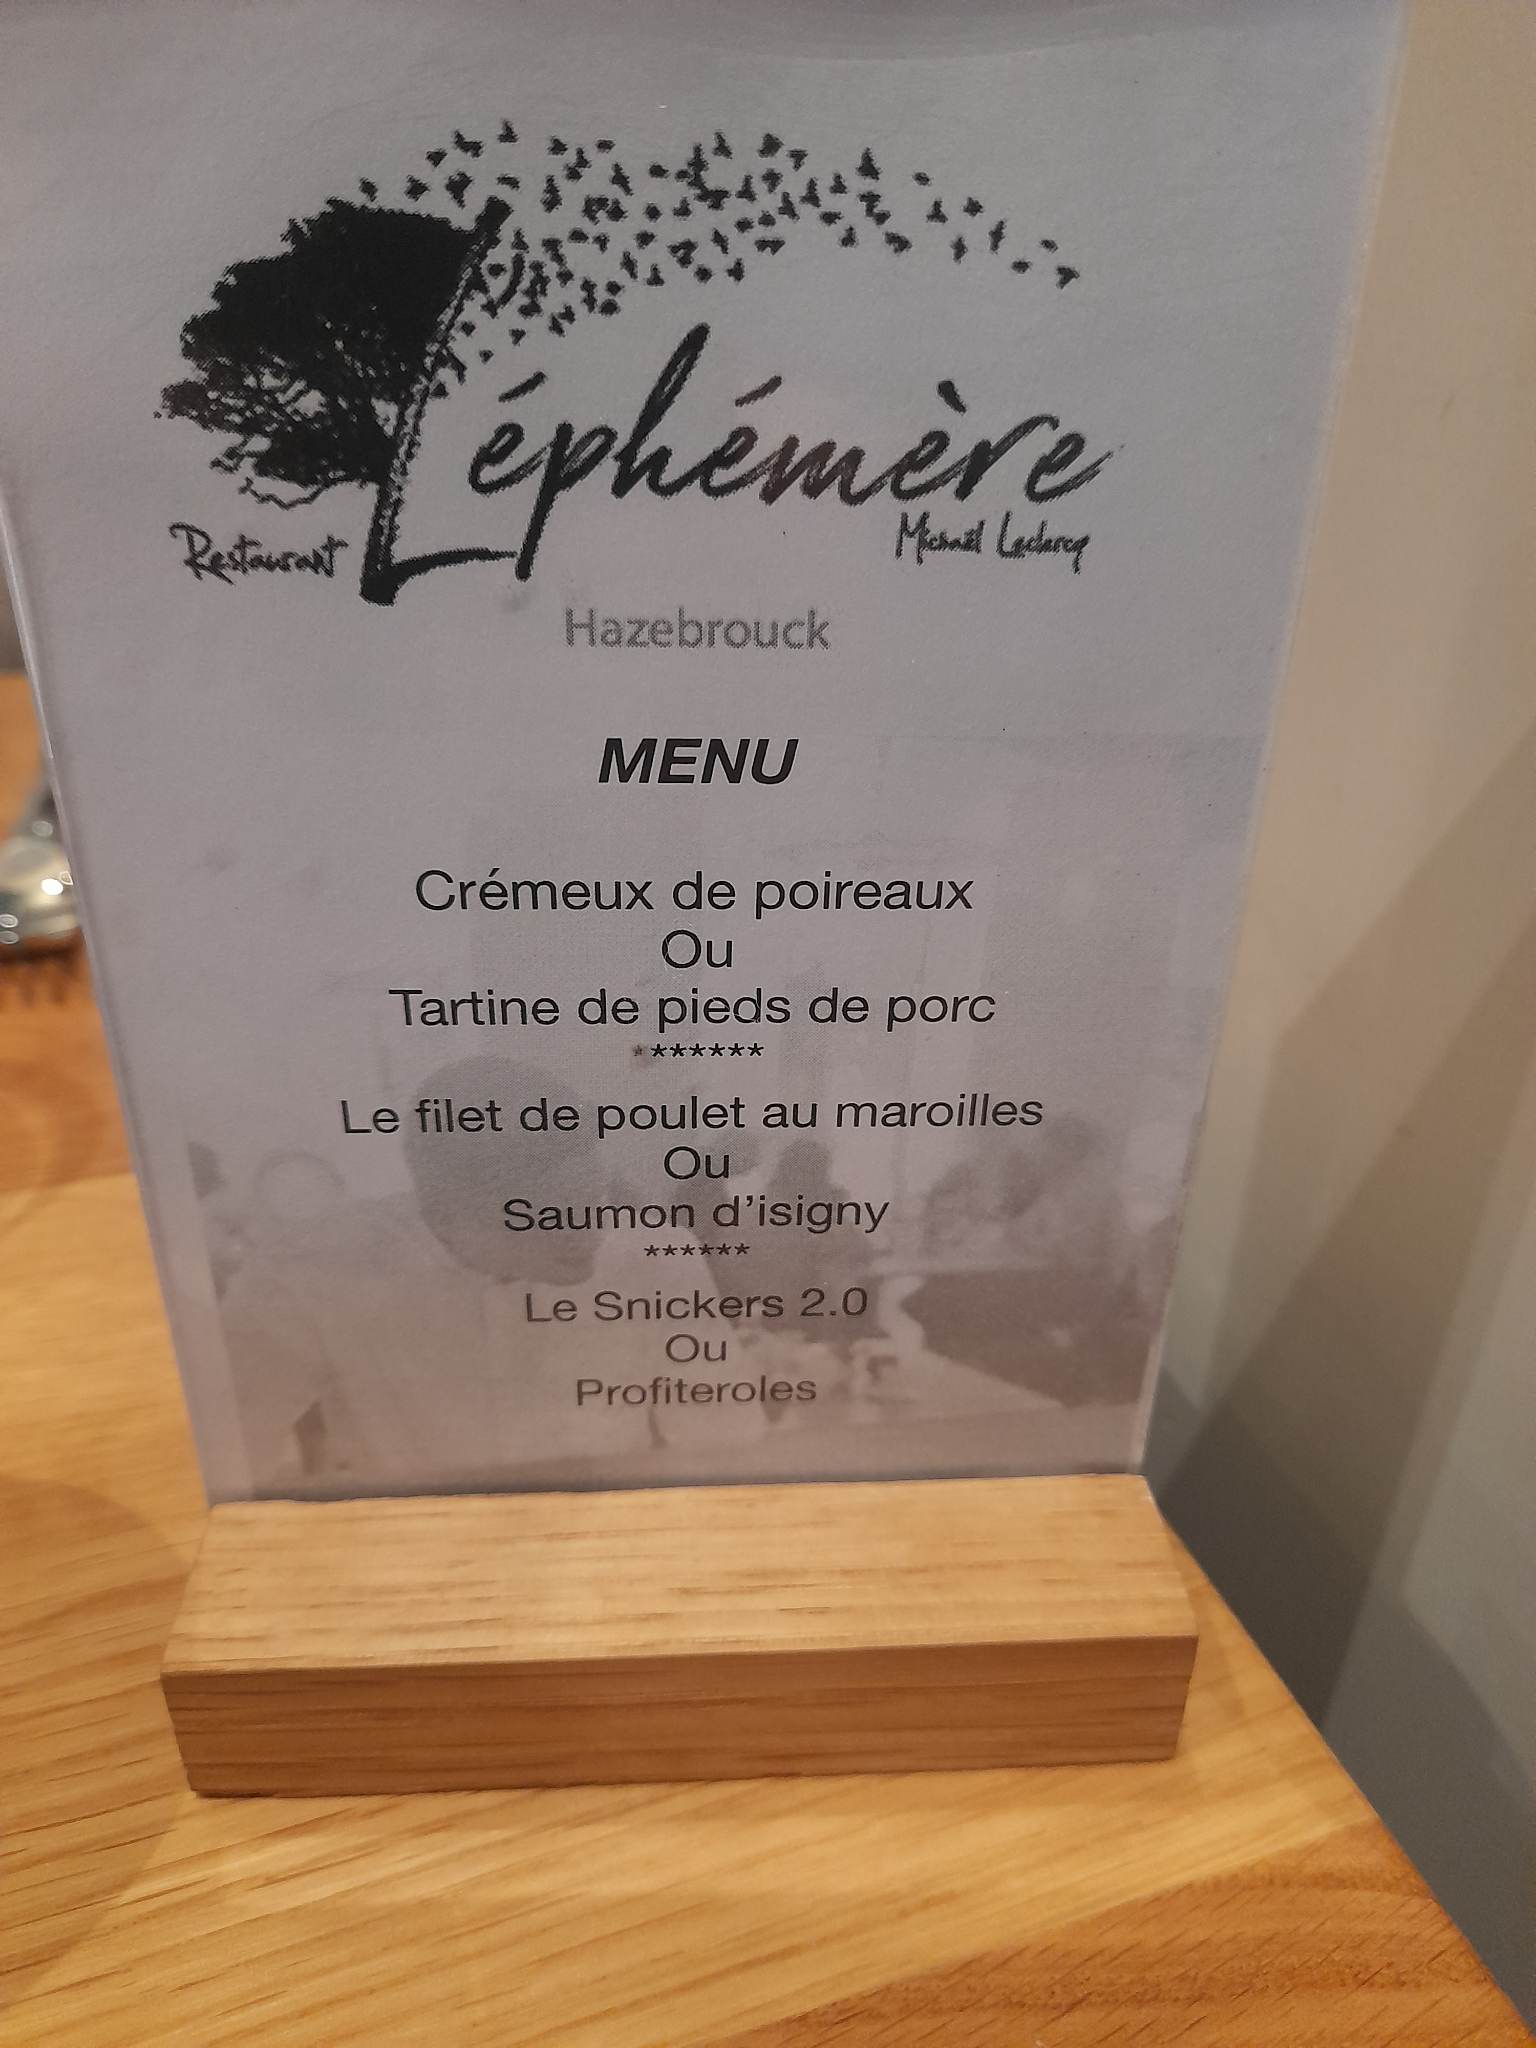 L'éphémère
Restaurant
Michaël Leclercq
Hazebrouck
MENU
Crémeux de poireaux
Ou
Tartine de pieds de porc
*******
Le filet de poulet au maroilles
Ou
Saumon d'isigny
******
Le Snickers 2.0
Ou
Profiteroles